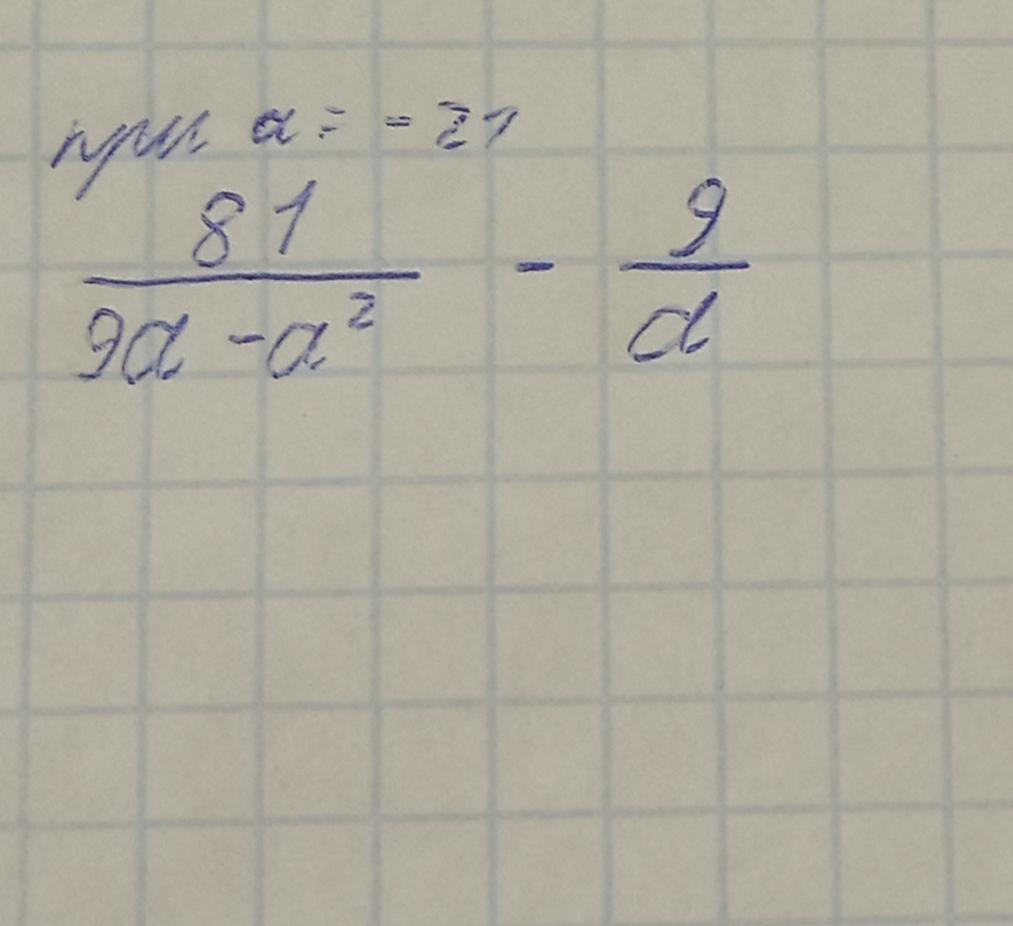 при a = -21
81/(9a - a²) - 9/a